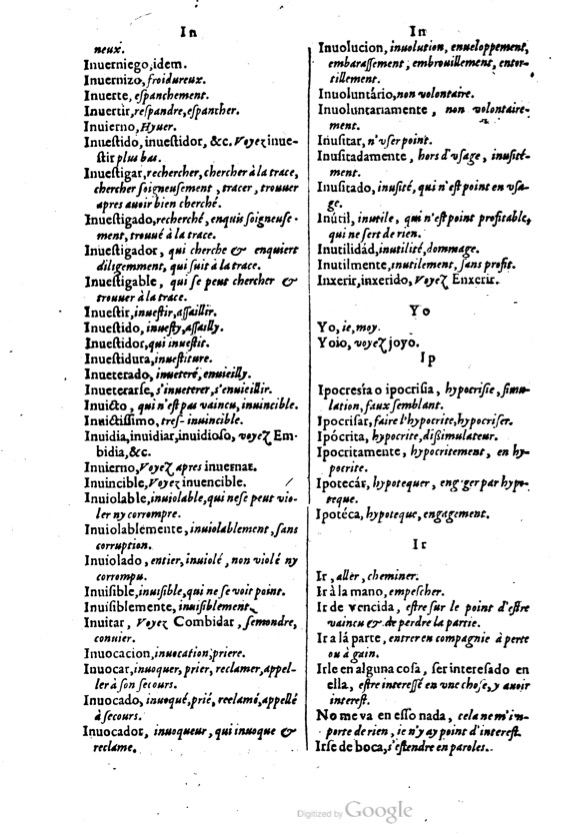 In
neux.
Inuerniego, idem.
Inuernizo, froidureux.
Inuerte, eſpanchement.
Inuertir, reſpandre, eſpancher.
Inuierno, Hyuer.
Inueſtido, inueſtidor, &c. Voyez inue-
ſtir plus bas.
Inueſtigar, rechercher, chercher à la trace,
chercher ſoigneuſement, tracer, trouuer
apres auoir bien cherché.
Inueſtigado, recherché, enquis ſoigneuſe-
ment, trouué à la trace.
Inueſtigador, qui cherche & enquiert
diligemment, qui ſuit à la trace.
Inueſtigable, qui ſe peut chercher &
trouuer à la trace.
Inueſtir, inueſtir, aſſaillir.
Inueſtido, inueſty, aſſailly.
Inueſtidor, qui inueſtit.
Inueſtidura, inueſtiture.
Inueterado, inueteré, enuieilly.
Inueterarſe, s'inueterer, s'enuieillir.
Inuicto, qui n'eſt pas vaincu, inuincible.
Inuictiſſimo, tres-inuincible.
Inuidia, inuidiar, inuidioſo, voyez Em-
bidia, &c.
Inuierno, Voyez apres inuernar.
Inuincible, Voyez inuencible.
Inuiolable, inuiolable, qui ne ſe peut vio-
ler ny corrompre.
Inuiolablemente, inuiolablement, ſans
corruption.
Inuiolado, entier, inuiolé, non violé ny
corrompu.
Inuiſible, inuiſible, qui ne ſe voit point.
Inuiſiblemente, inuiſiblement.
Inuitar, Voyez Combidar, ſemondre,
conuier.
Inuocacion, inuocation, priere.
Inuocar, inuoquer, prier, reclamer, appel-
ler à ſon ſecours.
Inuocado, inuoqué, prié, reclamé, appellé
à ſecours.
Inuocador, inuoqueur, qui inuoque &
reclame.
In
Inuolucion, inuolution, enueloppement,
embaraſſement, embrouillement, entor-
tillement.
Inuoluntário, non volontaire.
Inuoluntariamente, non volontaire-
ment.
Inuſitar, n'vſer point.
Inuſitadamente, hors d'vſage, inuſité-
ment.
Inuſitado, inuſité, qui n'eſt point en vſa-
ge.
Inútil, inutile, qui n'eſt point profitable,
qui ne ſert de rien.
Inutilidád, inutilité, dommage.
Inutilmente, inutilement, ſans profit.
Inxerir, inxerido, Voyez Enxerir.
Yo
Yo, ie, moy.
Yoio, voyez joyo.
Ip
Ipocreſia o ipocriſia, hypocriſie, ſimu-
lation, faux ſemblant.
Ipocriſar, faire l'hypocrite, hypocriſer.
Ipócrita, hypocrite, diſſimulateur.
Ipocritamente, hypocritement, en hy-
pocrite.
Ipotecár, hypotequer, engager par hypo-
teque.
Ipotéca, hypoteque, engagement.
Ir
Ir, aller, cheminer.
Ir à la mano, empeſcher.
Ir de vencida, eſtre ſur le point d'eſtre
vaincu & de perdre la partie.
Ir a lá parte, entrer en compagnie à perte
ou à gain.
Irle en alguna coſa, ſer intereſado en
ella, eſtre intereſſé en vne choſe, y auoir
intereſt.
No me va en eſſo nada, cela ne m'im-
porte de rien, ie n'y ay point d'intereſt.
Irſe de boca, s'eſtendre en paroles.
Digitized by Google